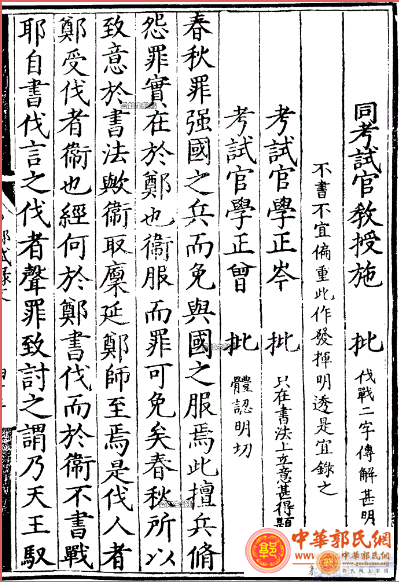 同考試官教授施 批 伐戰二字傳解甚明
不書不宜偏重此作發揮明透是宜錄之
考試官學正岑 批 只在書法上立意甚得題
考試官學正曾 批 體認明切
春秋罪强國之兵而免與國之服焉此擅兵脩
怨罪實在於鄭也衞服而罪可免矣春秋所以
致意於書法歟衞取廩延鄭師至焉是伐人者
鄭受伐者衞也經何於鄭書伐而於衞不書戰
耶自書伐言之伐者聲罪致討之謂乃天王馭
中華郭氏網